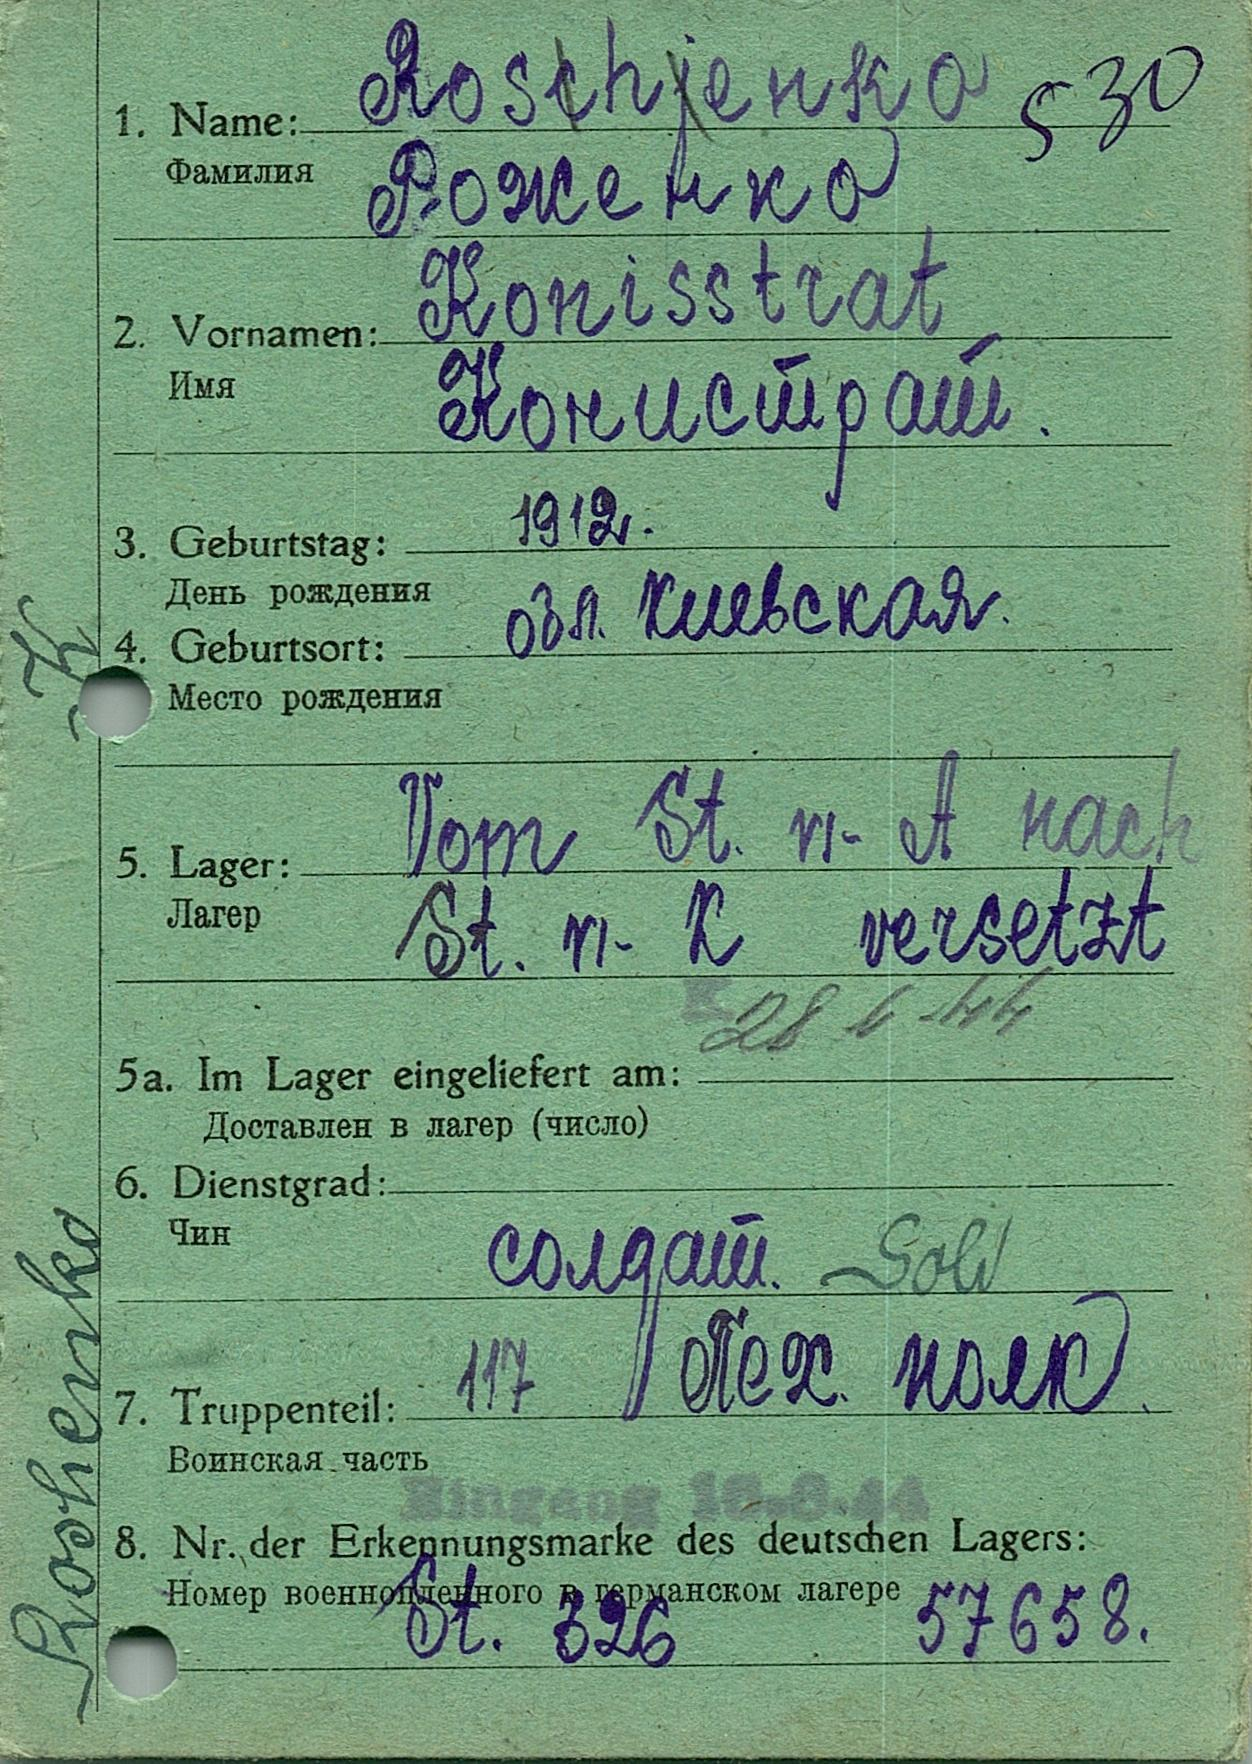 Roschjenko 530
1. Name:
Фамилия Роженко
2. Vornamen: Konisstrat
Имя Конистрат.
3. Geburtstag: 1912.
День рождения
4. Geburtsort: обл. Киевская.
Место рождения
5. Lager: Vom St. VI- A nach
Лагер St. VI- K versetzt
K 28 6 44
5a. Im Lager eingeliefert am:
Доставлен в лагер (число)
6. Dienstgrad:
Чин солдат. Sold
7. Truppenteil: 117 Пех. полк.
Воинская часть
Eingang 16.6.44
8. Nr. der Erkennungsmarke des deutschen Lagers:
Номер военнопленного в германском лагере
St. 326 57658.
Roshenko K